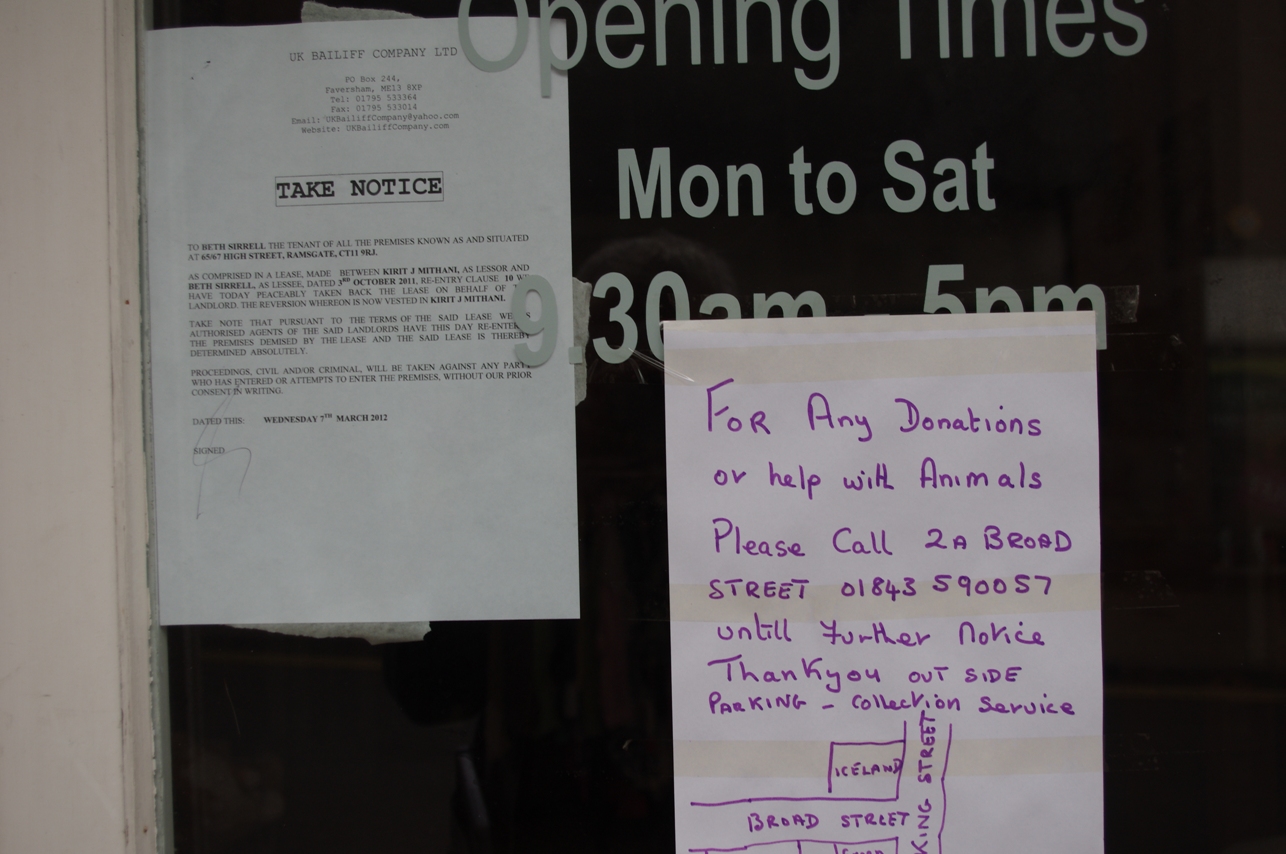 UK BAILIFF COMPANY LTD
PO Box 244,
Faversham, ME13 8XP
Tel: 01795 533364
Fax: 01795 533014
Email: UKBailiffCompany@yahoo.com
Website: UKBailiffCompany.com
TAKE NOTICE
TO BETH SIRRELL THE TENANT OF ALL THE PREMISES KNOWN AS AND SITUATED
AT 65/67 HIGH STREET, RAMSGATE, CT11 9RJ.
AS COMPRISED IN A LEASE, MADE BETWEEN KIRIT J MITHANI, AS LESSOR AND
BETH SIRRELL, AS LESSEE, DATED 3RD OCTOBER 2011, RE-ENTRY CLAUSE 10
HAVE TODAY PEACEABLY TAKEN BACK THE LEASE ON BEHALF OF
LANDLORD. THE REVERSION WHEREON IS NOW VESTED IN KIRIT J MITHANI.
TAKE NOTE THAT PURSUANT TO THE TERMS OF THE SAID LEASE
AUTHORISED AGENTS OF THE SAID LANDLORDS HAVE THIS DAY
THE PREMISES DEMISED BY THE LEASE AND THE SAID LEASE IS THEREBY
DETERMINED ABSOLUTELY.
PROCEEDINGS, CIVIL AND/OR CRIMINAL, WILL BE TAKEN AGAINST ANY PARTY
WHO HAS ENTERED OR ATTEMPTS TO ENTER THE PREMISES, WITHOUT OUR PRIOR
CONSENT IN WRITING.
DATED THIS: WEDNESDAY 7TH MARCH 2012
SIGNED
Opening Times
Mon to Sat
9.30am - 5pm
FOR Any Donations
or help with Animals
Please Call 2A BROAD
STREET 01843 590057
untill further Notice
Thankyou OUT SIDE
PARKING - Collection Service
ICELAND
BROAD STREET
KING STREET